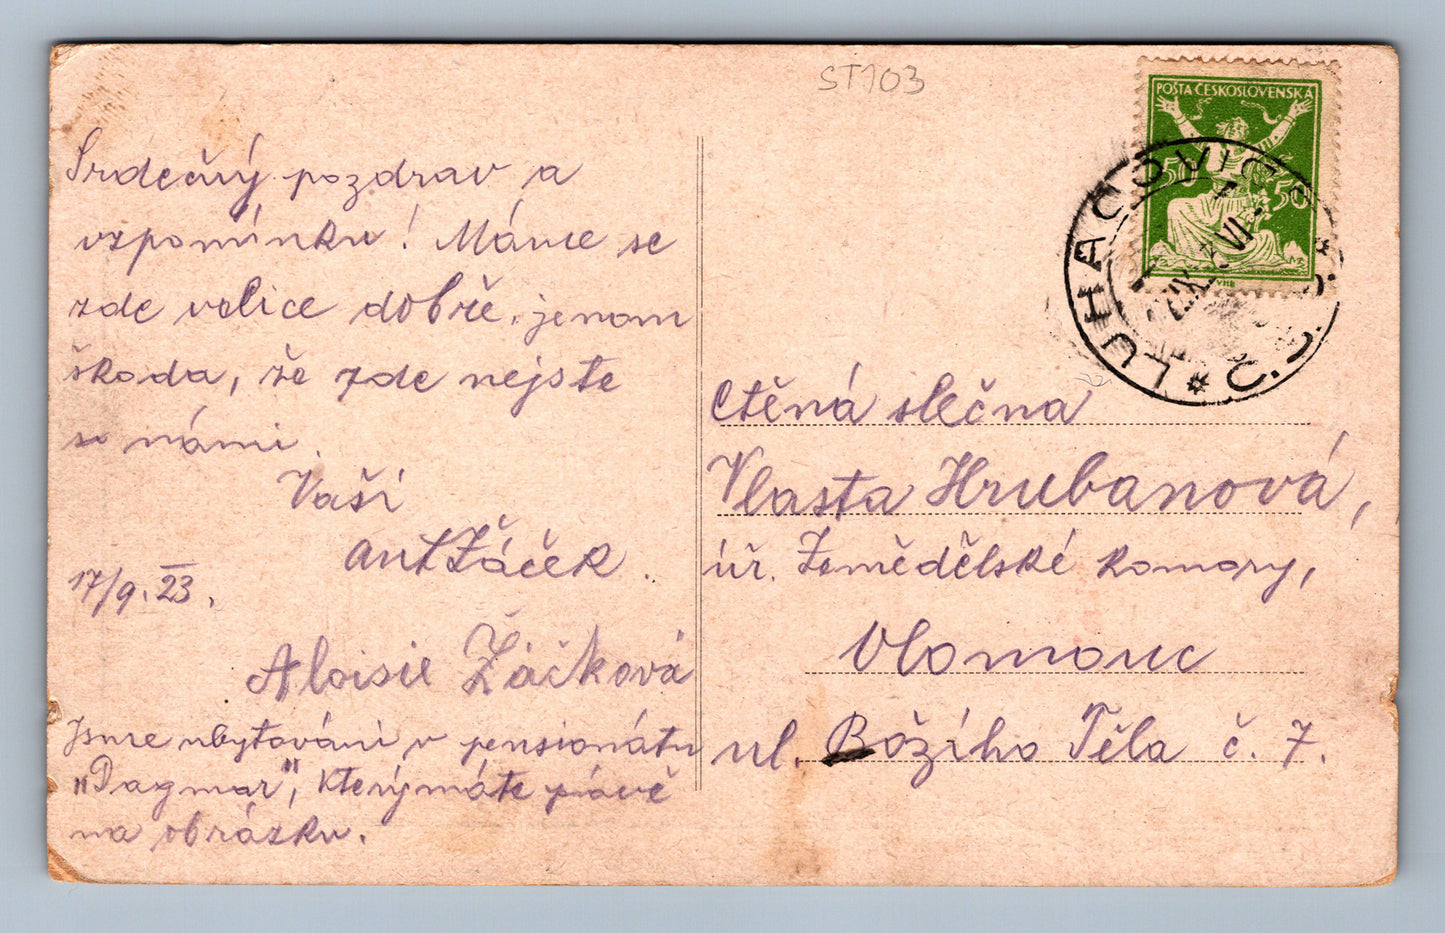 ST103
POŠTA ČESKOSLOVENSKÁ
50 50
VHB
LUHAČOVICE
Srdečný pozdrav a
vzpomínku! Máme se
zde velice dobře, jenom
škoda, že zde nejste
s námi.
Vaši
Ant Žáček.
17/9. 23.
Aloisie Žáčková
Jsme ubytováni v pensionátu
"Dagmar", který máte právě
na obrázku.
Ctěná slečna
Vlasta Hrubanová,
úř. Zemědělské komory,
Olomouc
ul. Božího Těla č. 7.